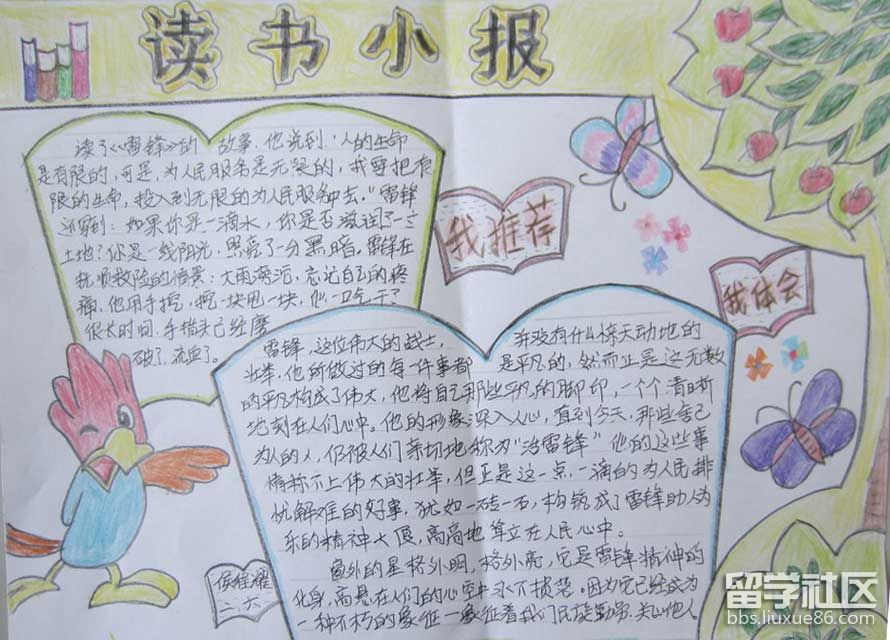 读书小报
读了《雷锋》的故事,他说到"人的生命
是有限的,可是,为人民服务是无限的,我要把有
限的生命,投入到无限的为人民服务中去。"雷锋
还写到:如果你是一滴水,你是否滋润了一寸
土地?你是一线阳光,照亮了一分黑暗。雷锋在
抚顺救险的情景:大雨滂沱,忘记自己的疼
痛,他用手挖,挖一块甩一块,他一口气干了
很长时间,手指末已经磨
破了,流血了。
我推荐
我体会
雷锋,这位伟大的战士, 并没有什么惊天动地的
壮举,他所做过的每一件事都是平凡的,然而正是这无数
的平凡构成了伟大,他将自己那些平凡的脚印,一个个清晰
地刻在人们心中。他的形象深入人心,直到今天,那些舍己
为人的人,仍被人们亲切地称为"活雷锋"他的这些事
情称不上伟大的壮举,但正是这一点一滴的为人民排
忧解难的好事,犹如一砖一石,构筑成了雷锋助人为
乐的精神大厦,高高地耸立在人民心中。
窗外的星格外明,格外亮,它是雷锋精神的
化身,高悬在人们的心空永不损毁。因为它已经成为
一种不朽的象征—象征着我们民族勤劳、关心他人
二、六
留学社区
bbs.liuxue86.com